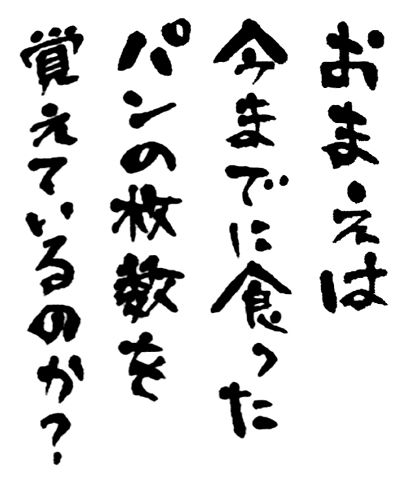 おまえは
今までに食った
パンの枚数を
覚えているのか？